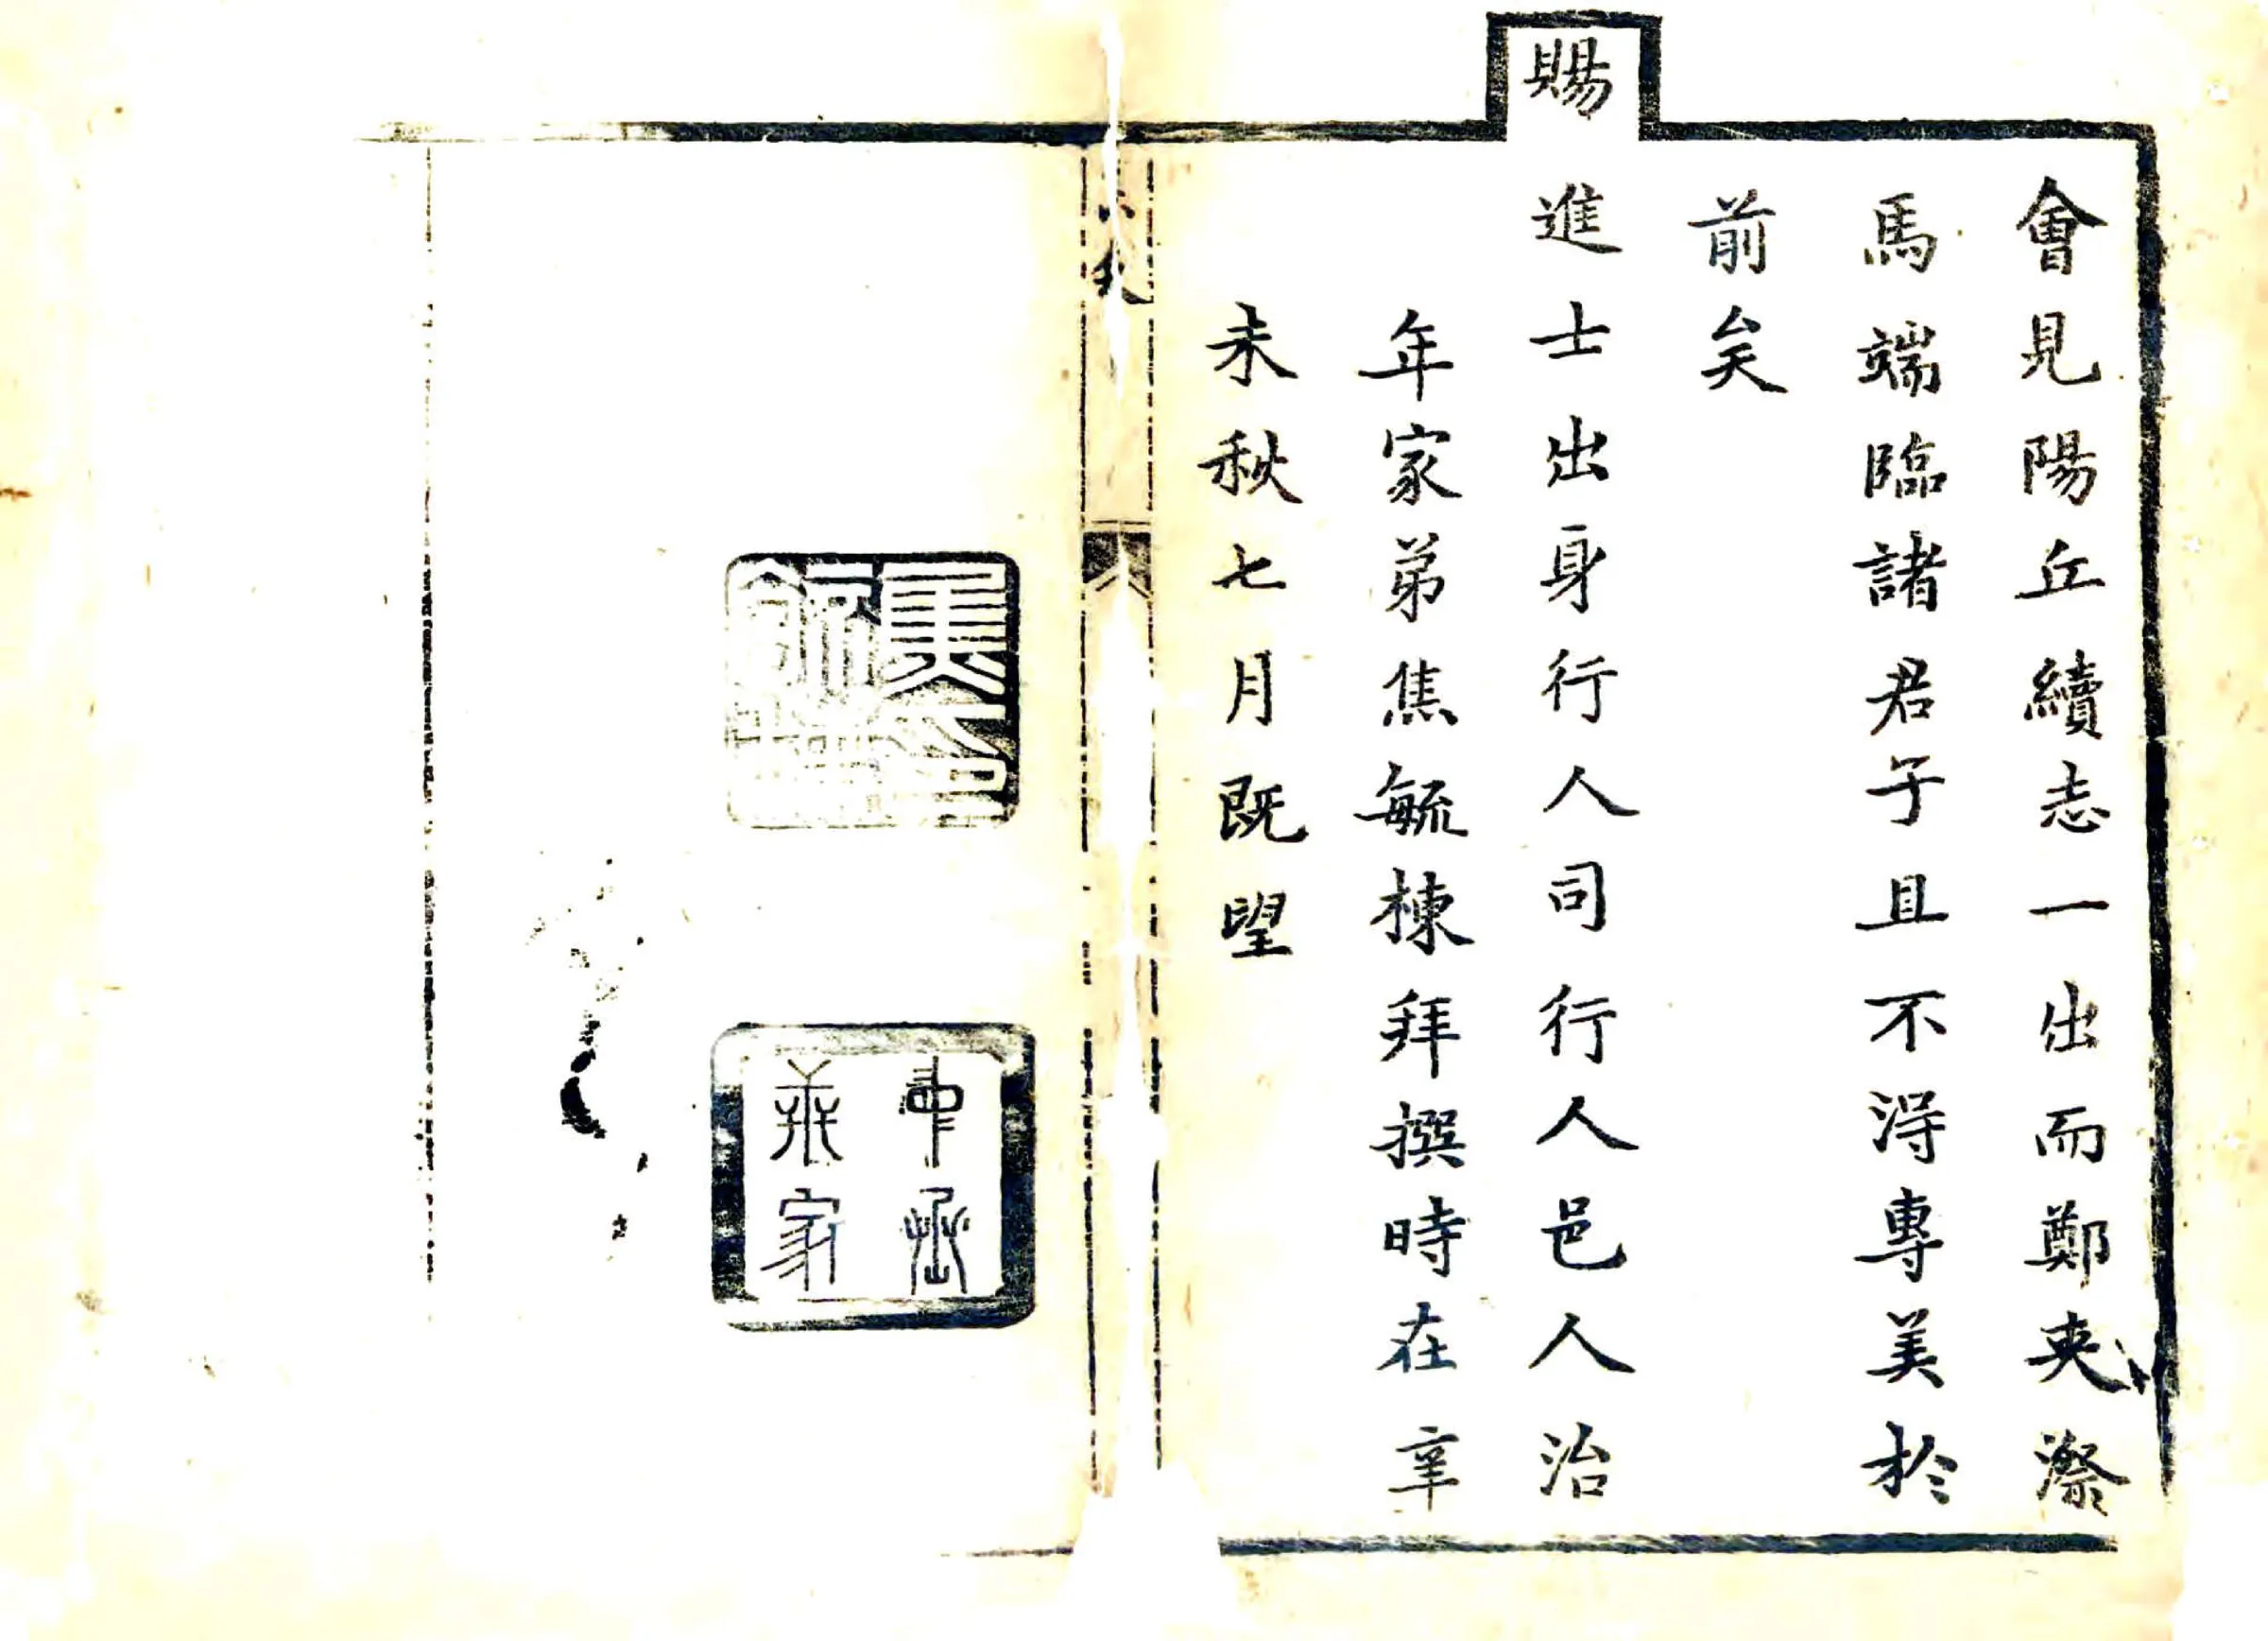 會見陽丘續志一出而鄭夾漈
馬端臨諸君子且不淂專美於
前矣
賜進士出身行人司行人邑人治
年家弟焦毓棟拜撰時在辛
未秋七月既望